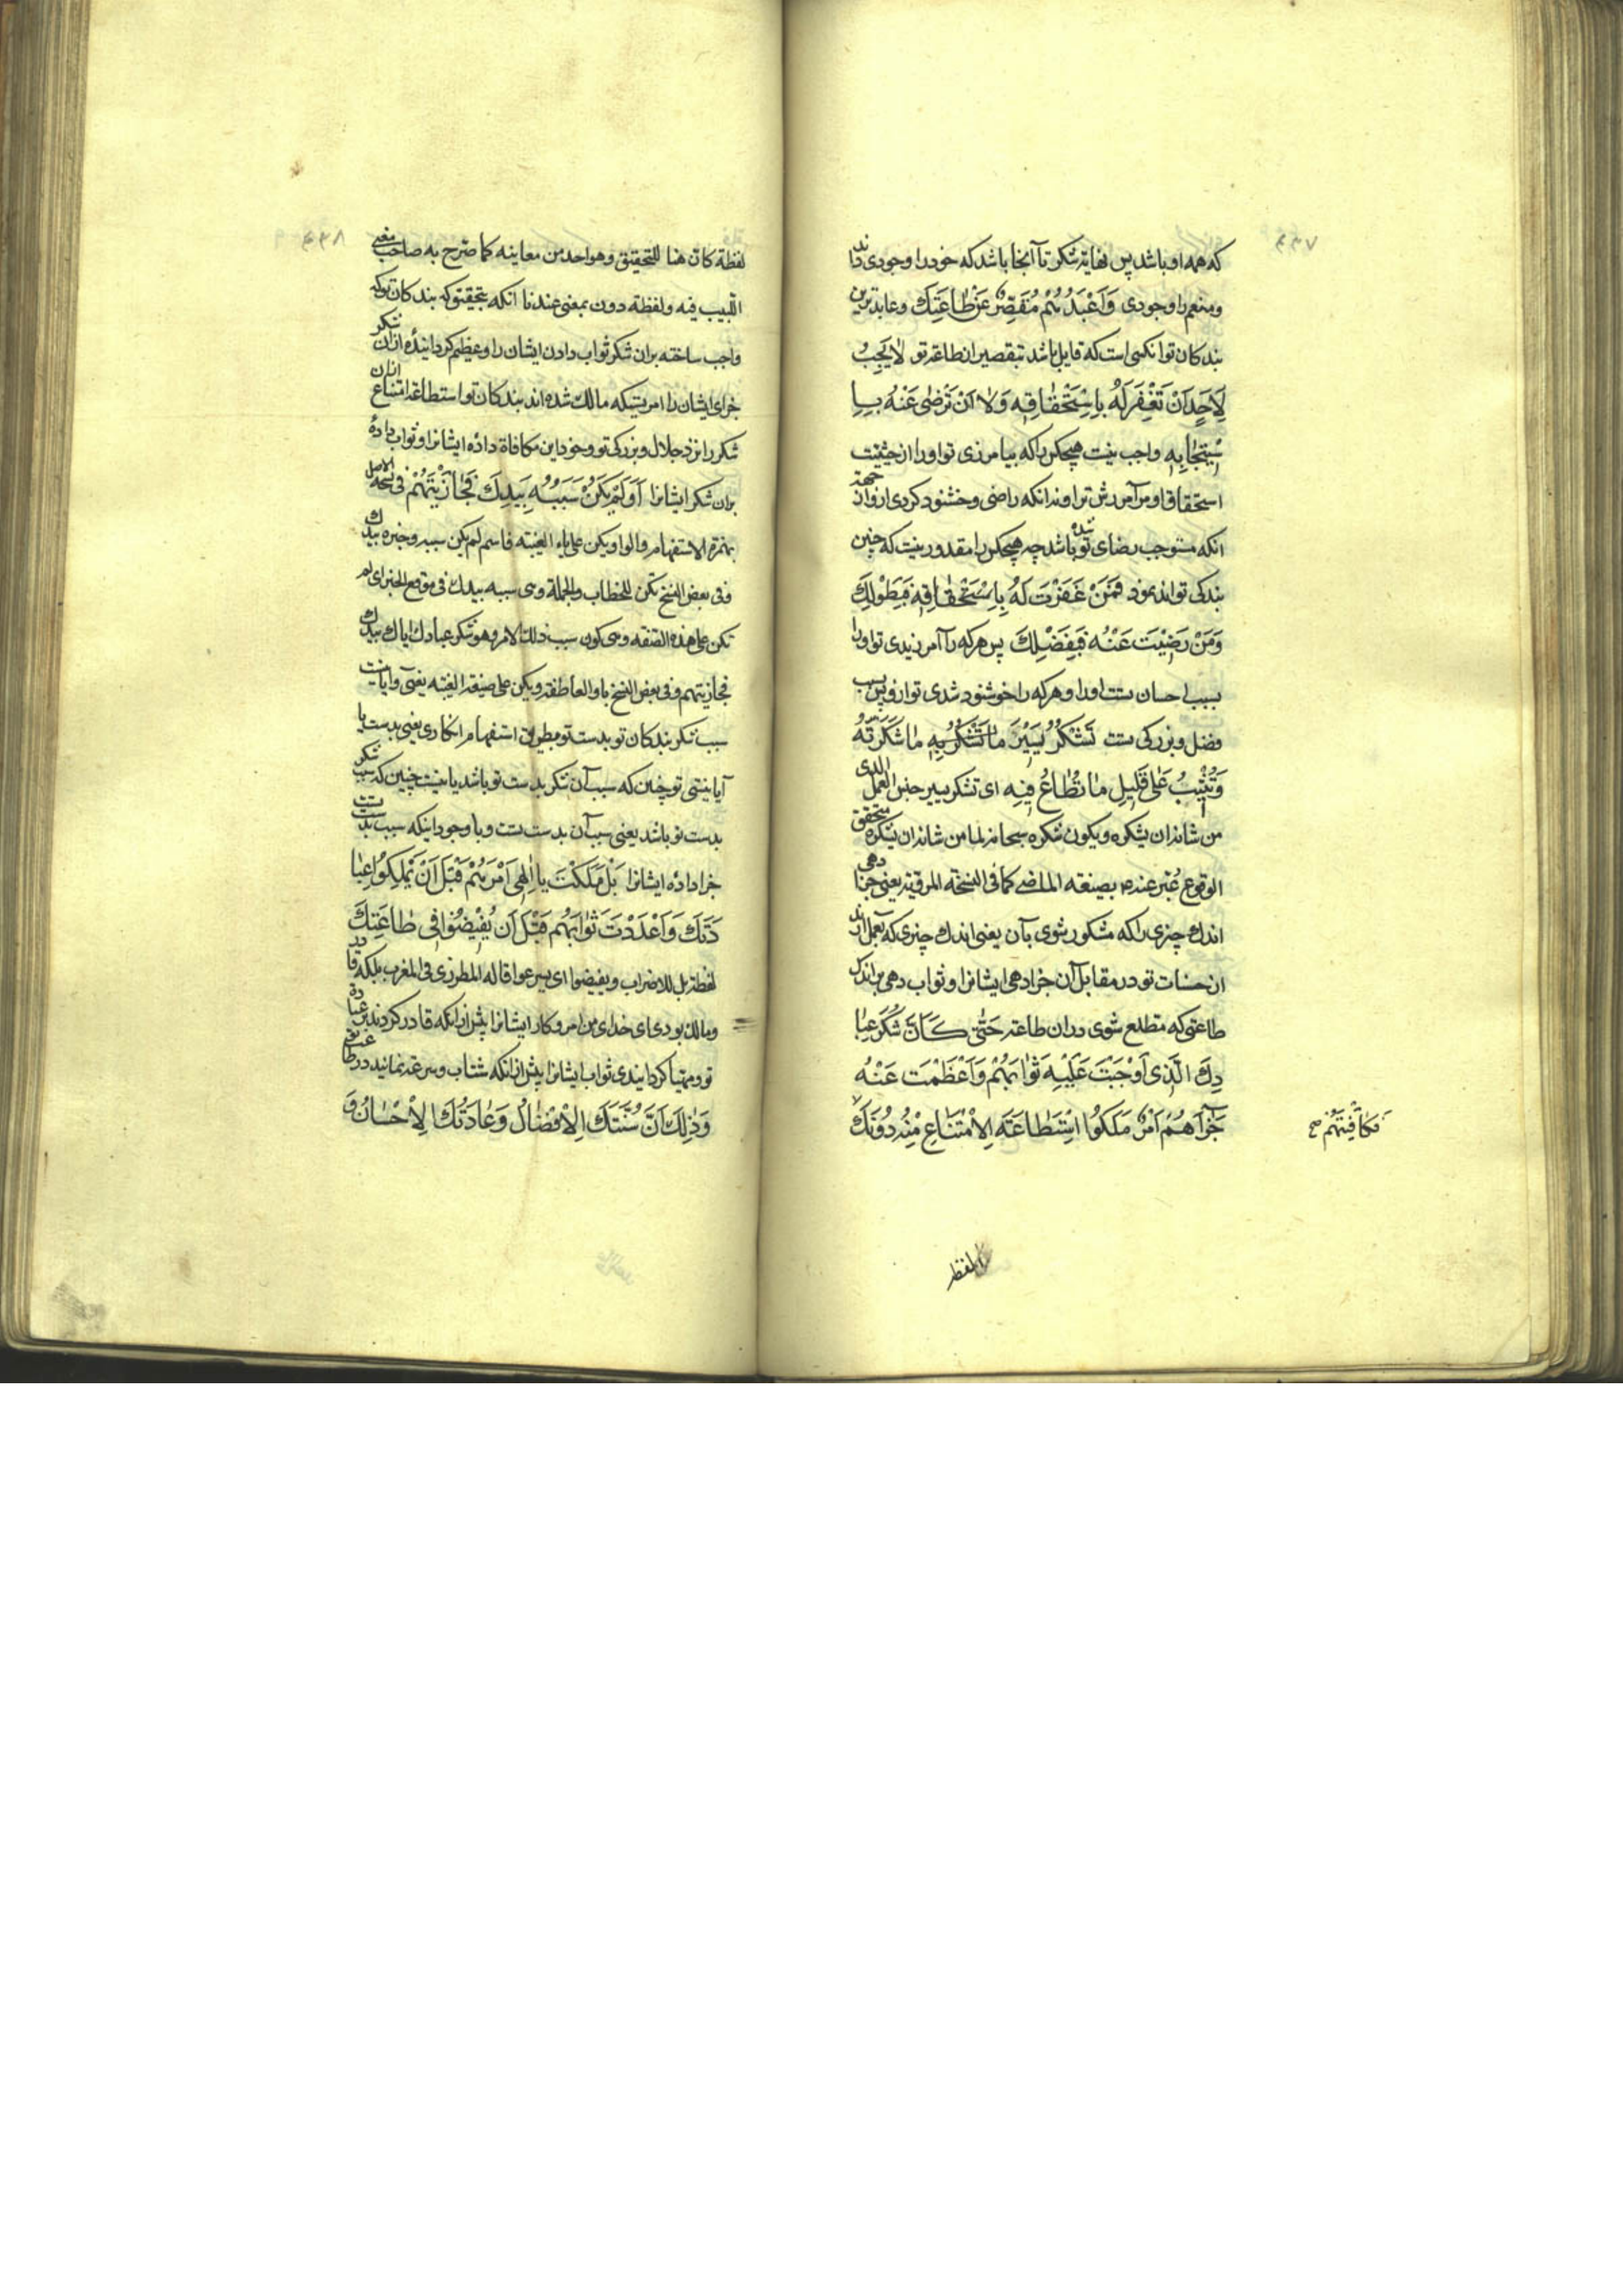 ۴۳۷
که همه او باشد پس نهایة شکر تا آنجا باشد که خود را وجودی داند
ومنعم را وجودی وَاَعْبَدُهُمْ مُقَصِّرٌ عَنْ طَاعَتِكَ وعابدترین
بندکان تو انکسی است که قایل باشد بتقصیر از طاعة تو لٰا یَجِبُ
لِاَحَدٍ اَنْ تَغْفِرَ لَهُ بِاِسْتِحْقٰاقِهِ وَلٰا اَنْ تَرْضٰى عَنْهُ بِاِ
سْتِیجٰابِهِ واجب نیست هیچکس را که بیامرزی تو او را از حیثیت
استحقاق او مر آمرزش ترا ونه انکه راضی وخشنود کردی ازو از جهة
انکه مستوجب رضای تو شده باشد چه هیچکس را مقدور نیست که چنین
بندکی تواند نمود فَمَنْ غَفَرْتَ لَهُ بِاِسْتِحْقٰاقِهِ فَبِطَوْلِكَ
وَمَنْ رَضِیْتَ عَنْهُ فَبِفَضْلِكَ پس هر که را آمرزیدی تو او را
بسبب احسان تست او را وهر که را خوشنود شدی تو ازو پس بسبب
فضل وبزرکی تست تَشْكُرُ یَسِیْرَ مٰا تُشْكَرُ بِهِ مٰا شَكَرْتَهُ
وَتُثِیْبُ عَلٰى قَلِیلِ مٰا تُطٰاعُ فِیهِ ای تشکر یسیر جنس العمل الذی
من شانه ان یشکره ویکون شکره سبحانه لما من شانه ان یشکره متحقق
الوقوع عُبّر عنه بصیغه الماضی کما فی النسخة المرقیة یعنی جزا دهی
اندك چیزی را که مشکور شوی بآن یعنی اندك چیزی که بعمل ارند
از حسنات تو در مقابل آن جزا دهی ایشانرا وثواب دهی بر اندك
طاعتی که مطلع شوی در ان طاعة حَتّٰى كَاَنَّ شُكْرَ عِبٰا
دِكَ الَّذِى اَوْجَبْتَ عَلَیْهِ ثَوٰابَهُمْ وَاَعْظَمْتَ عَنْهُ
جَزٰآءَهُمْ اَمْرٌ مَلَكُوا اسْتِطٰاعَةَ الِامْتِنٰاعِ مِنْهُ دُوْنَكَ
فَكٰافَیْتَهُمْ صح
لفظة
۴۳۸
لفظة کانّ هنا للتحقیق وهو احد من معانیه کما صرّح به صاحب مغنی
اللبیب فیه ولفظة دون بمعنی عند نا انکه بتحقیق که بندکان تو که
واجب ساخته بران شکر ثواب دادن ایشان را وعظیم کردانیده از ان شکر
جزای ایشان را امریست که مالك شده اند بندکان تو استطاعة امتناع از ان
شکر را نزد جلال وبزرکی تو وخود این مکافاة داده ایشانرا وثواب داده
بران شکر ایشانرا اَوَ لَمْ یَكُنْ سَبَبُهُ بِیَدِكَ فَجٰازَیْتَهُمْ فی نسخة الاصل
بهمزة الاستفهام والواو ویکن علی یاء الغیبة فاسم لم یکن سببه وخبره بیدك
وفی بعض النسخ تکن للخطاب والجملة وهی سببه بیدك فی موقع الخبر ای لم
تکن علی هذه الصفة وهی کون سبب ذلك الامر وهو شکر عبادك ایاك بیدك
فجازیتهم وفی بعض النسخ باو العاطفة ویکن علی صیغة الغیبة یعنی وآیا نیست
سبب شکر بندکان تو بدست تو بطریق استفهام انکاری یعنی بدست یا
آیا نیستی تو چنان که سبب آن شکر بدست تو باشد یا نیست چنین که سبب شکر
بدست تو باشد یعنی سبب آن بدست تست وباوجود اینکه سبب بدست تست
جزا داده ایشانرا بَلْ مَلَكْتَ یٰا اِلٰهِى اَمْرَهُمْ قَبْلَ اَنْ یَمْلِكُوا عِبٰا
دَتَكَ وَاَعْدَدْتَ ثَوٰابَهُمْ قَبْلَ اَنْ یُفِیْضُوْا فِى طٰاعَتِكَ
لفظة بل للاضراب ویفیضوا ای یسرعوا قاله المطرزی فی المغرب بلکه قادر
ومالك بودی ای خدای من امر وکار ایشانرا پیش از انکه قادر کردند بر عبادة
تو ومهیا کردانیدی ثواب ایشانرا پیش از انکه شتاب وسرعة نمایند در طاعت تو
وَذٰلِكَ اَنَّ سُنَّتَكَ الْاِفْضٰالُ وَعٰادَتُكَ الْاِحْسٰانُ وَ